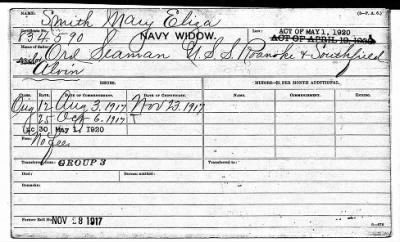 NAME: Smith Mary Eliza (3-P. A. G.)
Certificate No. 34590 NAVY WIDOW. Law: ACT OF MAY 1, 1920
Name of Sailor: Ord Seaman U.S.S. Roanoke & Southfield
Alvin
ISSUES. MINORS—$2 PER MONTH ADDITIONAL.
CLASS. RATE. DATE OF COMMENCEMENT. DATE OF CERTIFICATE. NAMES. COMMENCEMENT. ENDING.
Aug 12 Aug 3, 1917 Nov 23, 1917
25 Oct 6, 1917
30 May 1, 1920
Fee: No fee
Transferred from: GROUP 3 Transferred to:
Died:
Remarks:
Former Roll No. NOV 28 1917